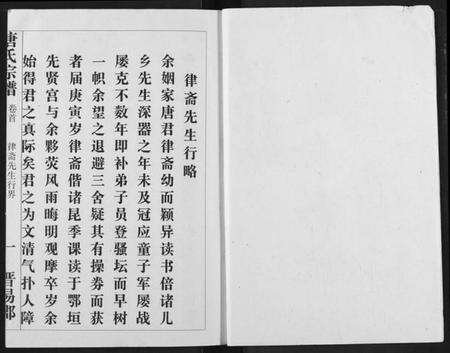 律斋先生行略
余姻家唐君律斋幼而颖异读书倍诸儿
乡先生深器之年未及冠应童子军屡战
屡克不数年即补弟子员登骚坛而早树
一帜余望之退避三舍疑其有操券而获
者届庚寅岁律斋偕诸昆季课读于鄂垣
先贤宫与余夥荧风雨晦明观摩卒岁余
始得君之真际矣君之为文清气扑人障
唐氏宗谱
卷首
律斋先生行界
一
晋昜郡